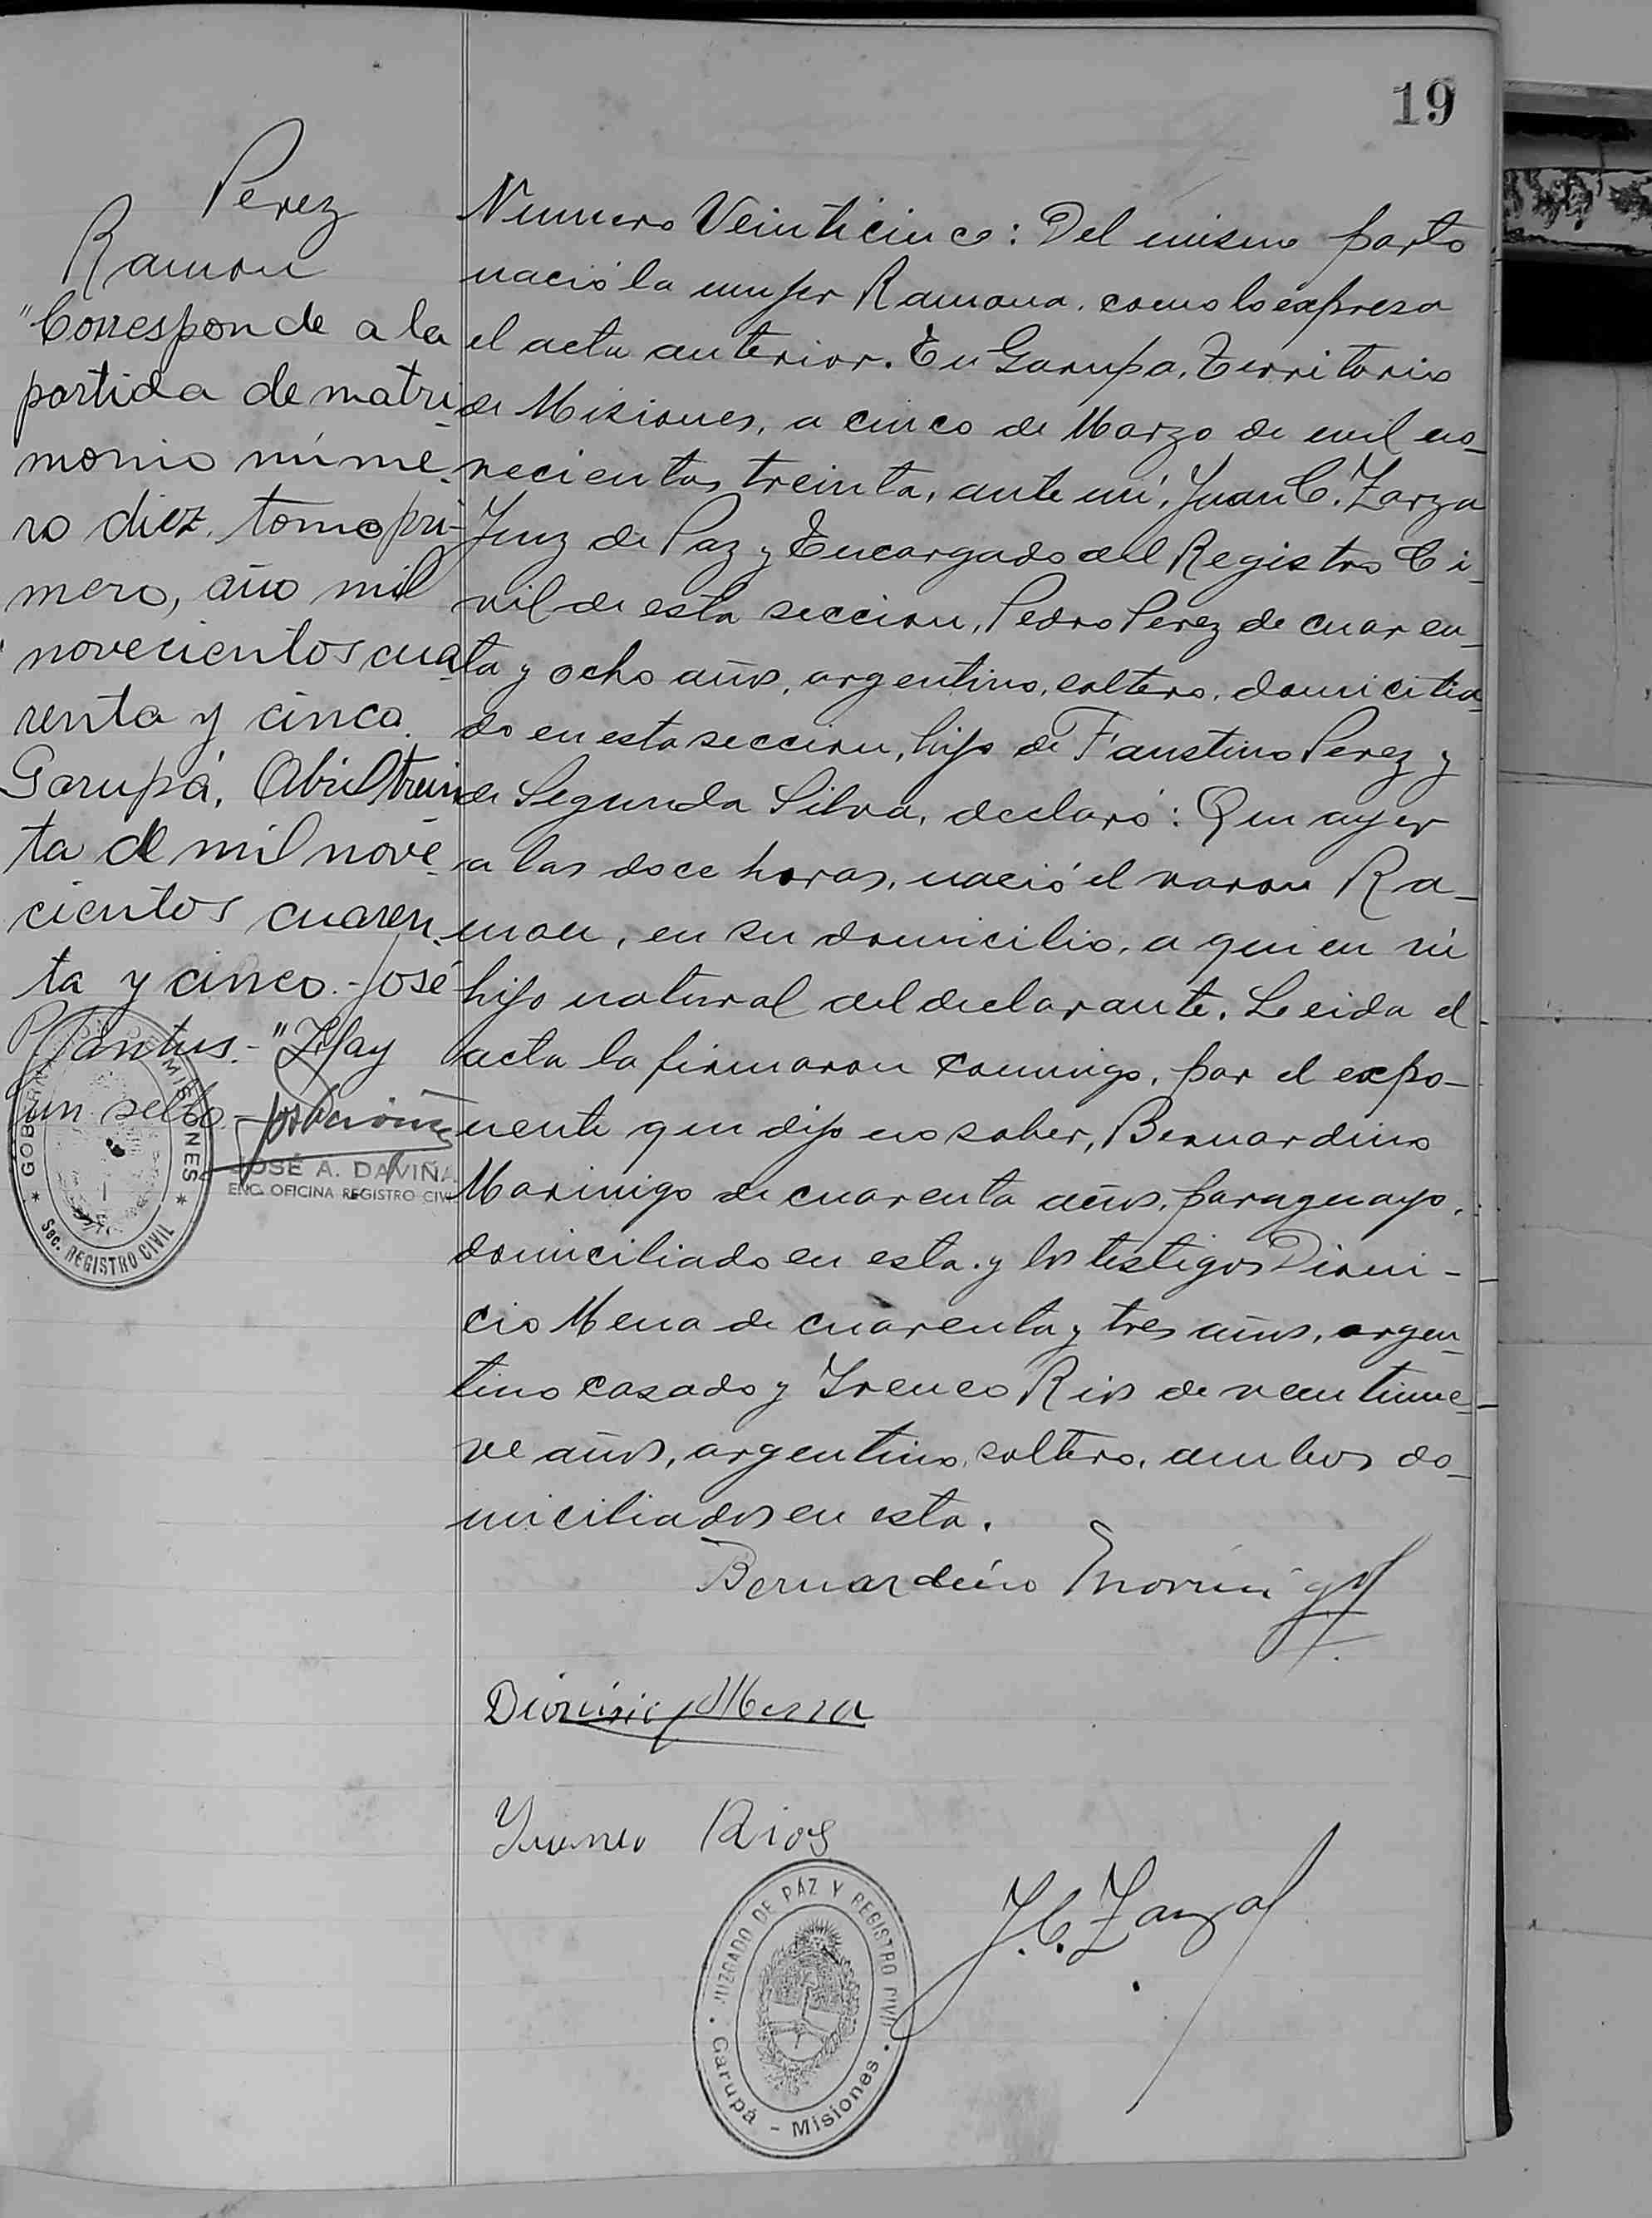 19
Perez
Ramon
"Corresponde a la
partida de matri-
monio núme-
ro diez, tomo pri-
mero, año mil
novecientos cua-
renta y cinco.
Garupá, Abril trein-
ta de mil nove-
cientos cuaren-
ta y cinco.- José
"Hay
un sello
GOBERNACION DE MISIONES
Sec. REGISTRO CIVIL
JOSÉ A. DAVIÑA
ENC. OFICINA REGISTRO CIVIL
Numero Veinticinco: Del mismo parto
nació la mujer Ramona, como lo expresa
el acta anterior. En Garupa, Territorio
de Misiones, a cinco de Marzo de mil no-
vecientos treinta, ante mi, Juan C. Zarza
Juez de Paz y Encargado del Registro Ci-
vil de esta seccion, Pedro Perez de cuaren-
ta y ocho años, argentino, soltero, domicilia-
do en esta seccion, hijo de Faustino Perez y
de Segunda Silva, declaró: Que ayer
a las doce horas, nació el varon Ra-
mon, en su domicilio, a quien vi
hijo natural del declarante. Leida el
acta la firmaron conmigo, por el expo-
nente que dijo no saber, Bernardino
Marinigo de cuarenta años, paraguayo,
domiciliado en esta y los testigos Dioni-
cio Mena de cuarenta y tres años, argen-
tino casado y Ireneo Rios de veintinue-
ve años, argentino, soltero, ambos do-
miciliados en esta.
Bernardino Morinigo
Dionisio Mena
Yreneo Rios
J. C. Zarza
JUZGADO DE PAZ Y REGISTRO CIVIL
Garupá - Misiones